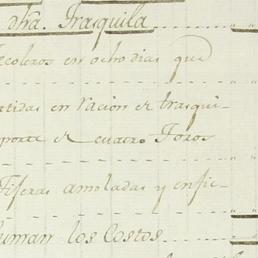 dha. Trasquila
scoleros en ocho dias que
rtidas en racion de trasqui-
porte de cuatro Toros
Tiseras amoladas y enfie-
suman los Costos